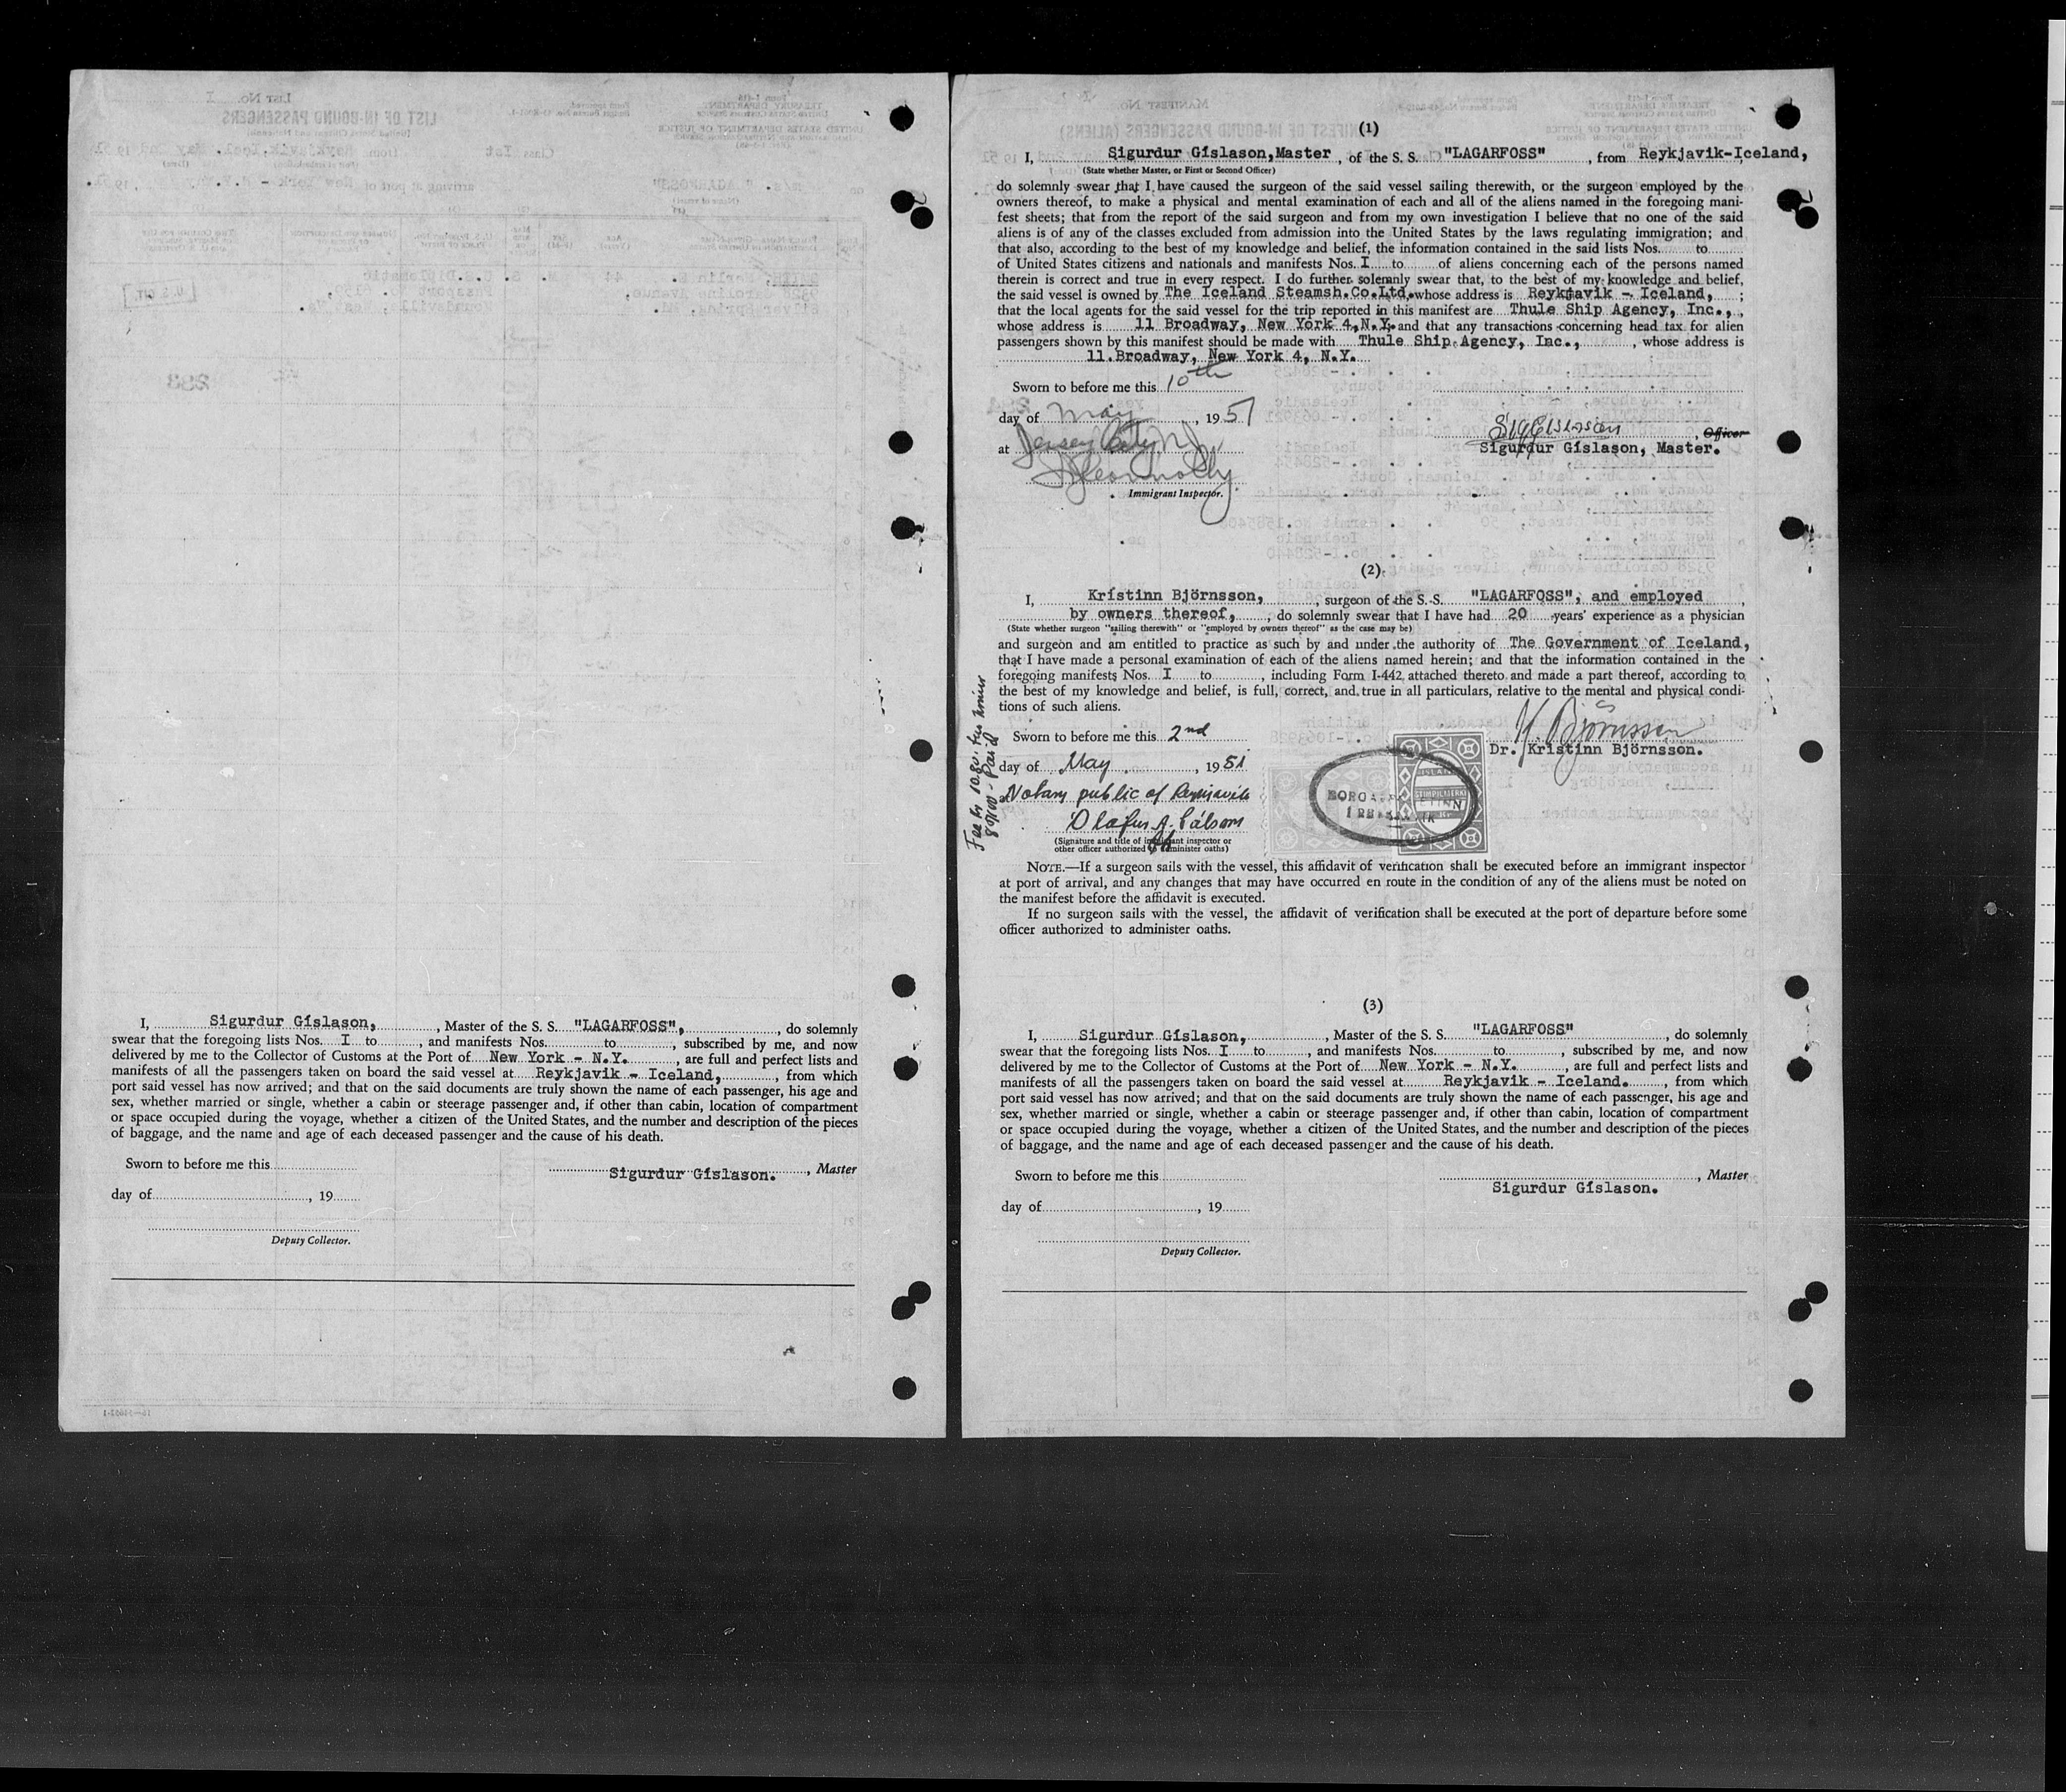 I, Sigurdur Gíslason, , Master of the S. S. "LAGARFOSS", , do solemnly
swear that the foregoing lists Nos. I to , and manifests Nos. to , subscribed by me, and now
delivered by me to the Collector of Customs at the Port of New York - N.Y. , are full and perfect lists and
manifests of all the passengers taken on board the said vessel at Reykjavik - Iceland, , from which
port said vessel has now arrived; and that on the said documents are truly shown the name of each passenger, his age and
sex, whether married or single, whether a cabin or steerage passenger and, if other than cabin, location of compartment
or space occupied during the voyage, whether a citizen of the United States, and the number and description of the pieces
of baggage, and the name and age of each deceased passenger and the cause of his death.
Sworn to before me this
, Master
Sigurdur Gíslason.
day of , 19
Deputy Collector.
(1)
I, Sigurdur Gíslason, Master , of the S. S. "LAGARFOSS" , from Reykjavik-Iceland,
(State whether Master, or First or Second Officer)
do solemnly swear that I have caused the surgeon of the said vessel sailing therewith, or the surgeon employed by the
owners thereof, to make a physical and mental examination of each and all of the aliens named in the foregoing mani-
fest sheets; that from the report of the said surgeon and from my own investigation I believe that no one of the said
aliens is of any of the classes excluded from admission into the United States by the laws regulating immigration; and
that also, according to the best of my knowledge and belief, the information contained in the said lists Nos. to
of United States citizens and nationals and manifests Nos. I to of aliens concerning each of the persons named
therein is correct and true in every respect. I do further solemnly swear that, to the best of my knowledge and belief,
the said vessel is owned by The Iceland Steamsh.Co.Ltd. whose address is Reykjavik - Iceland, ;
that the local agents for the said vessel for the trip reported in this manifest are Thule Ship Agency, Inc., ,
whose address is 11 Broadway, New York 4, N.Y. and that any transactions concerning head tax for alien
passengers shown by this manifest should be made with Thule Ship Agency, Inc., , whose address is
11. Broadway, New York 4, N.Y.
Sworn to before me this 10th
day of May , 1951
at Jersey City N.J.
, Officer
Sigurdur Gíslason, Master.
Immigrant Inspector.
(2)
I, Kristinn Björnsson, , surgeon of the S. S. "LAGARFOSS", and employed ,
by owners thereof, , do solemnly swear that I have had 20 years' experience as a physician
(State whether surgeon "sailing therewith" or "employed by owners thereof" as the case may be)
and surgeon and am entitled to practice as such by and under the authority of The Government of Iceland,
that I have made a personal examination of each of the aliens named herein; and that the information contained in the
foregoing manifests Nos. I to , including Form I-442 attached thereto and made a part thereof, according to
the best of my knowledge and belief, is full, correct, and true in all particulars, relative to the mental and physical condi-
tions of such aliens.
Sworn to before me this 2nd
K. Björnsson
Dr. Kristinn Björnsson.
day of May , 1951
Notary public of Reykjavik
(Signature and title of immigrant inspector or
other officer authorized to administer oaths)
NOTE.—If a surgeon sails with the vessel, this affidavit of verification shall be executed before an immigrant inspector
at port of arrival, and any changes that may have occurred en route in the condition of any of the aliens must be noted on
the manifest before the affidavit is executed.
If no surgeon sails with the vessel, the affidavit of verification shall be executed at the port of departure before some
officer authorized to administer oaths.
(3)
I, Sigurdur Gíslason, , Master of the S. S. "LAGARFOSS" , do solemnly
swear that the foregoing lists Nos. I to , and manifests Nos. to , subscribed by me, and now
delivered by me to the Collector of Customs at the Port of New York - N.Y. , are full and perfect lists and
manifests of all the passengers taken on board the said vessel at Reykjavik - Iceland. , from which
port said vessel has now arrived; and that on the said documents are truly shown the name of each passenger, his age and
sex, whether married or single, whether a cabin or steerage passenger and, if other than cabin, location of compartment
or space occupied during the voyage, whether a citizen of the United States, and the number and description of the pieces
of baggage, and the name and age of each deceased passenger and the cause of his death.
Sworn to before me this
, Master
Sigurdur Gíslason.
day of , 19
Deputy Collector.